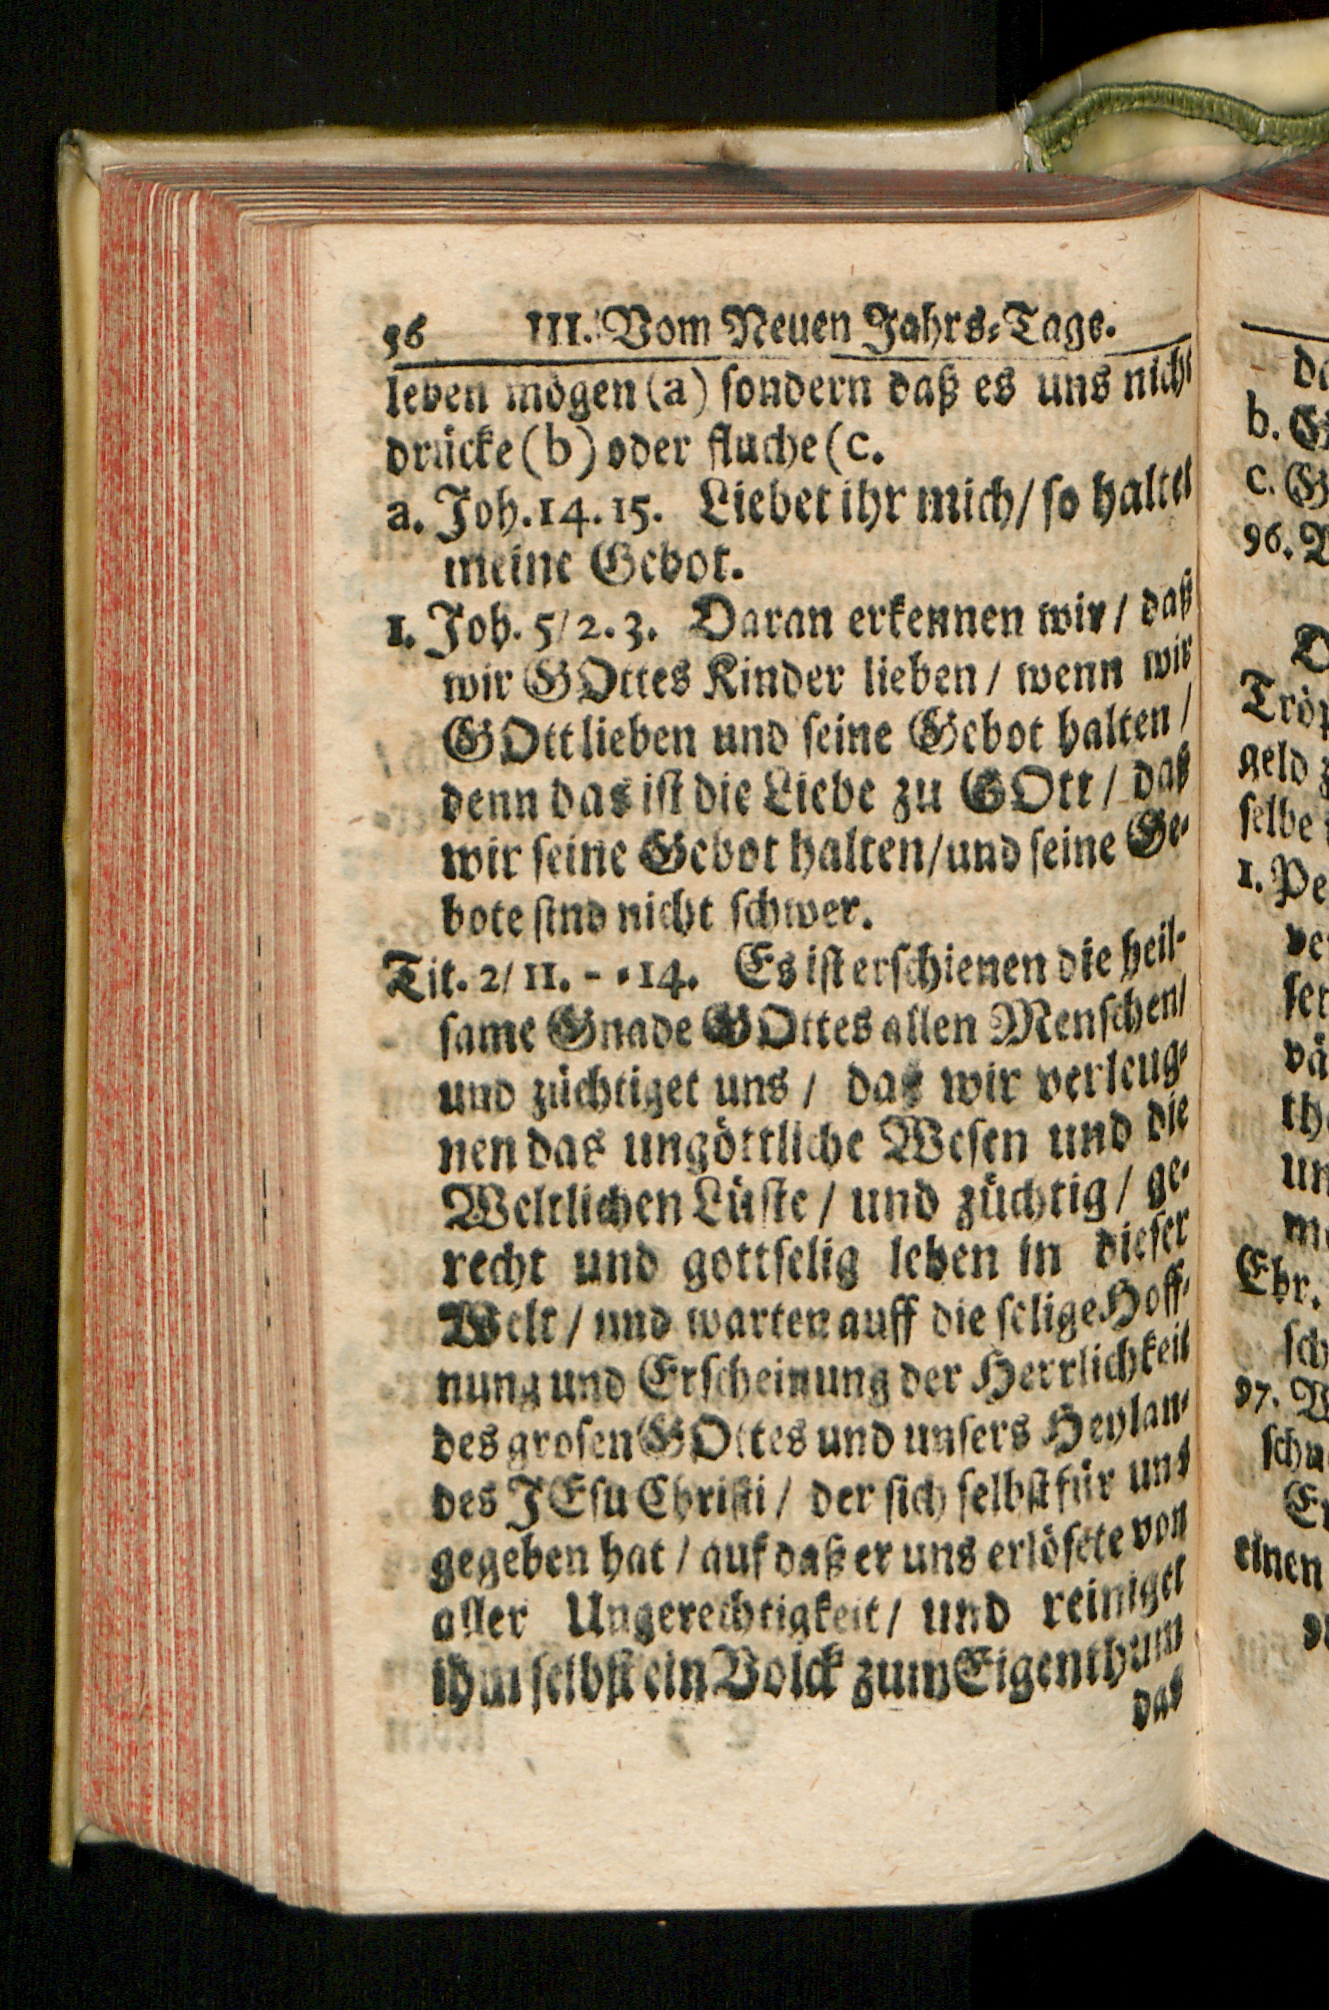 56 III. Vom Neuen Jahrs-Tage.
leben mögen (a) sondern daß es uns nicht
drücke (b) oder fluche (c.
a. Joh. 14. 15. Liebet ihr mich / so haltet
meine Gebot.
1. Joh. 5/2. 3. Daran erkennen wir / daß
wir GOttes Kinder lieben / wenn wir
GOtt lieben und seine Gebot halten /
denn das ist die Liebe zu GOtt / daß
wir seine Gebot halten / und seine Ge-
bote sind nicht schwer.
Tit. 2/ 11. - - 14. Es ist erschienen die heil-
same Gnade GOttes allen Menschen /
und züchtiget uns / daß wir verleug-
nen das ungöttliche Wesen und die
Weltlichen Lüste / und züchtig / ge-
recht und gottselig leben in dieser
Welt / und warten auff die selige Hoff-
nung und Erscheinung der Herrlichkeit
des grosen GOttes und unsers Heylan-
des JEsu Christi / der sich selbst für uns
gegeben hat / auf daß er uns erlösete von
aller Ungerechtigkeit / und reiniget
ihm selbst ein Volck zum Eigenthum
das
b. G
c. G
96.
Tröp
geld z
selbe
1. Pe
ver
ser
vä
the
un
Ebr.
sch
97. W
schu
Er
einen